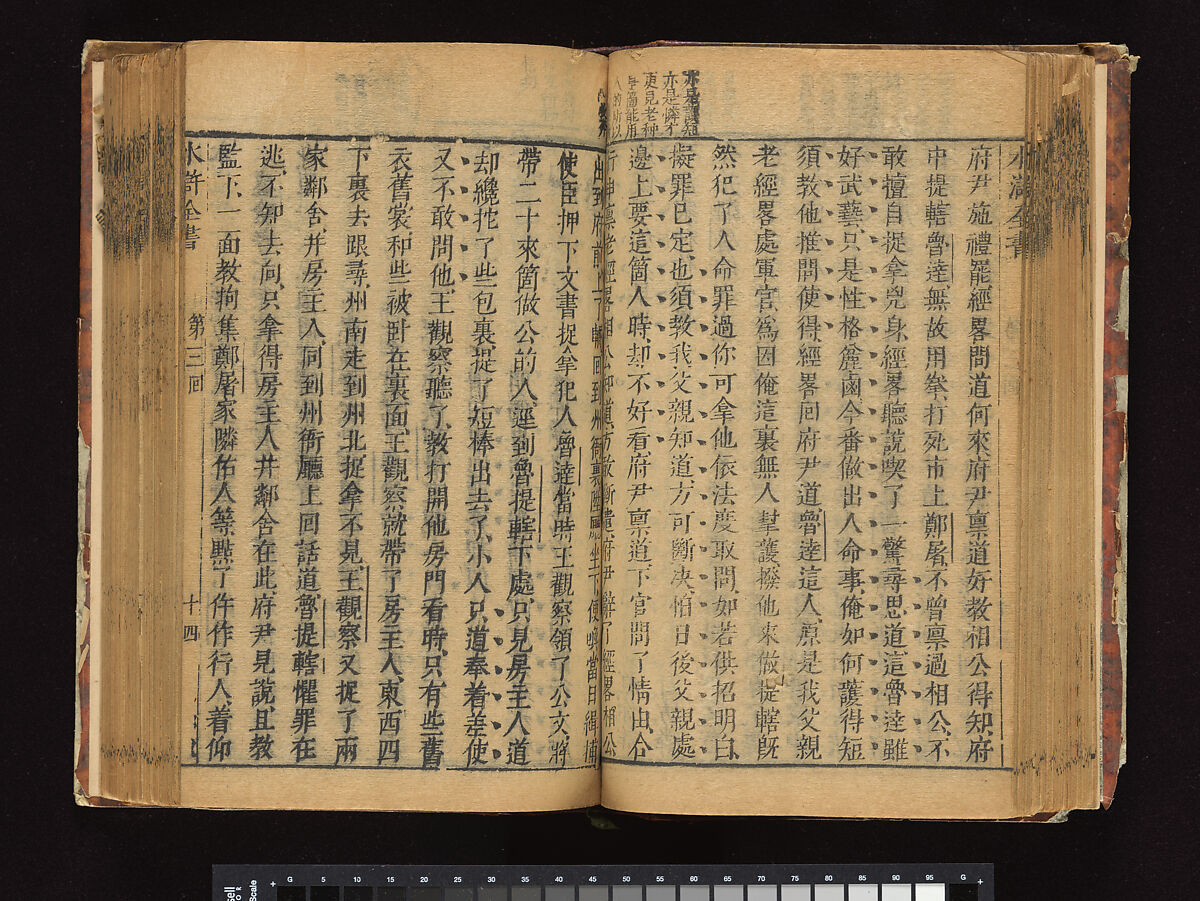 水滸全書
府尹施禮罷經畧問道何來府尹禀道好教相公得知府
中提轄魯達無故用拳打死市上鄭屠不曾禀過相公不
敢擅自捉拿兇身經畧聽說喫了一驚尋思道這魯達雖
好武藝只是性格麄鹵今番做出人命事俺如何護得短
須教他推問使得經畧囘府尹道魯達這人原是我父親
老經畧處軍官爲因俺這裏無人幇護撥他來做提轄旣
然犯了人命罪過你可拿他依法度取問如若供招明白
擬罪已定也須教我父親知道方可斷决怕日後父親處
邊上要這箇人時却不好看府尹禀道下官問了情由合
行申禀老經畧相公知道方敢斷遣府尹辭了經畧相公
出到府前上了轎囘到州衙裏陞廳坐下便喚當日緝捕
使臣押下文書捉拿犯人魯達當時王觀察領了公文將
帶二十來箇做公的人逕到魯提轄下處只見房主人道
却纔拕了些包裹提了短棒出去了小人只道奉着差使
又不敢問他王觀察聽了教打開他房門看時只有些舊
衣舊裳和些被卧在裏面王觀察就帶了房主人東西四
下裏去跟尋州南走到州北捉拿不見王觀察又捉了兩
家鄰舍并房主人同到州衙廳上囘話道魯提轄懼罪在
逃不知去向只拿得房主人并鄰舍在此府尹見說且教
監下一面教拘集鄭屠家隣佑人等點了仵作行人着仰
水滸全書
第三囘
十四
亦是護短
亦是憐才
更見老种
是箇能用
人的所以